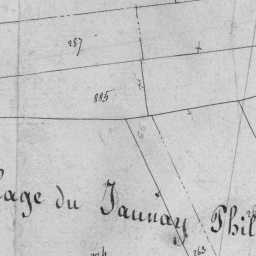 257
885
age du Jaunay Phil
263